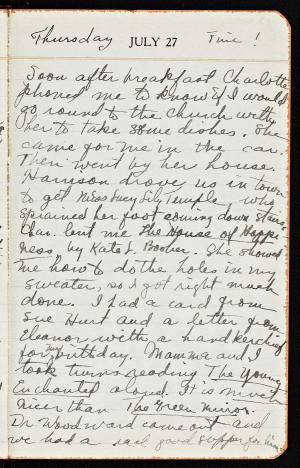 Thursday JULY 27 Fine!
Soon after breakfast Charlotte
phoned me to know if I would
go round to the Church with
her to take some dishes. She
came for me in the car.
Then went by her house.
Harrison drove us in town
to get Miss Lucy Lily Temple, who
sprained her foot coming down stairs.
Char. lent me The House of Happi
ness by Kate L. Bosher. She showed
me how to do the holes in my
sweater, so I got right much
done. I had a card from
Sue Hurt and a letter from
Eleanor with a handkerchief
for my birthday. Mamma and I
took turns reading The Young
Enchanted aloud. It is much
nicer than The Green Mirror.
Dr Woodward came out and
we had a real good supper for him.